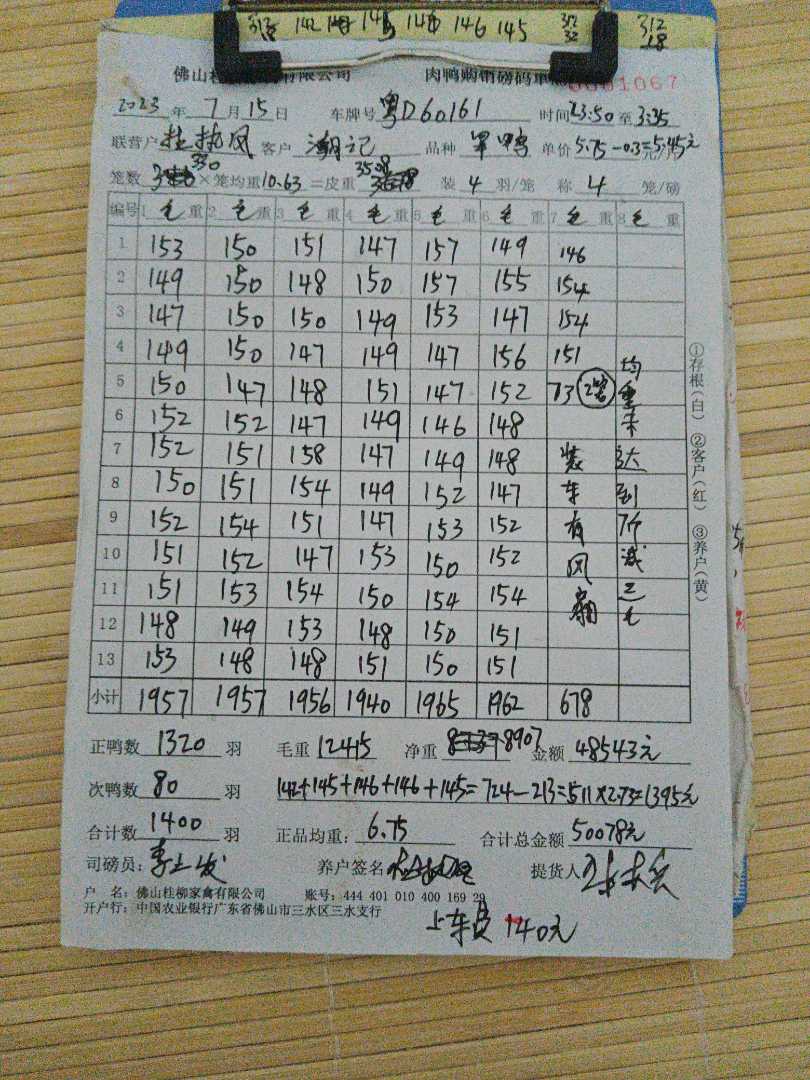 312 142 145 146 145 312 18
佛山桂 有限公司 肉鸭购销磅码单 0001067
2023年7月15日 车牌号 粤D60161 时间 23:50 至 3:35
联营户 客户 潮记 品种 单鸭 单价 5.75-0.3=5.45元
笼数 330 ×笼均重10.63=皮重 3508 装4羽/笼 称4笼/磅
编号 1毛重 2毛重 3毛重 4毛重 5毛重 6毛重 7毛重 8毛重
1 153 150 151 147 157 149 146
2 149 150 148 150 157 155 154
3 147 150 150 149 153 147 154
4 149 150 147 149 147 156 151
5 150 147 148 151 147 152 73 2笼
6 152 152 147 149 146 148
7 152 151 158 147 149 148
8 150 151 154 149 152 147
9 152 154 151 147 153 152
10 151 152 147 153 150 152
11 151 153 154 150 154 154
12 148 149 153 148 150 151
13 153 148 148 151 150 151
小计 1957 1957 1956 1940 1965 1962 678
装车有风扇
均重未达到7斤减三毛
①存根(白) ②客户(红) ③养户(黄)
正鸭数 1320 羽 毛重 12415 净重 8907 金额 48543元
次鸭数 80 羽 142+145+146+146+145=724-213=511×2.73=1395元
合计数 1400 羽 正品均重: 6.75 合计总金额 50078元
司磅员: 养户签名 提货人
户 名: 佛山桂柳家禽有限公司 账号: 444 401 010 400 169 29
开户行: 中国农业银行广东省佛山市三水区三水支行
上车费 140元